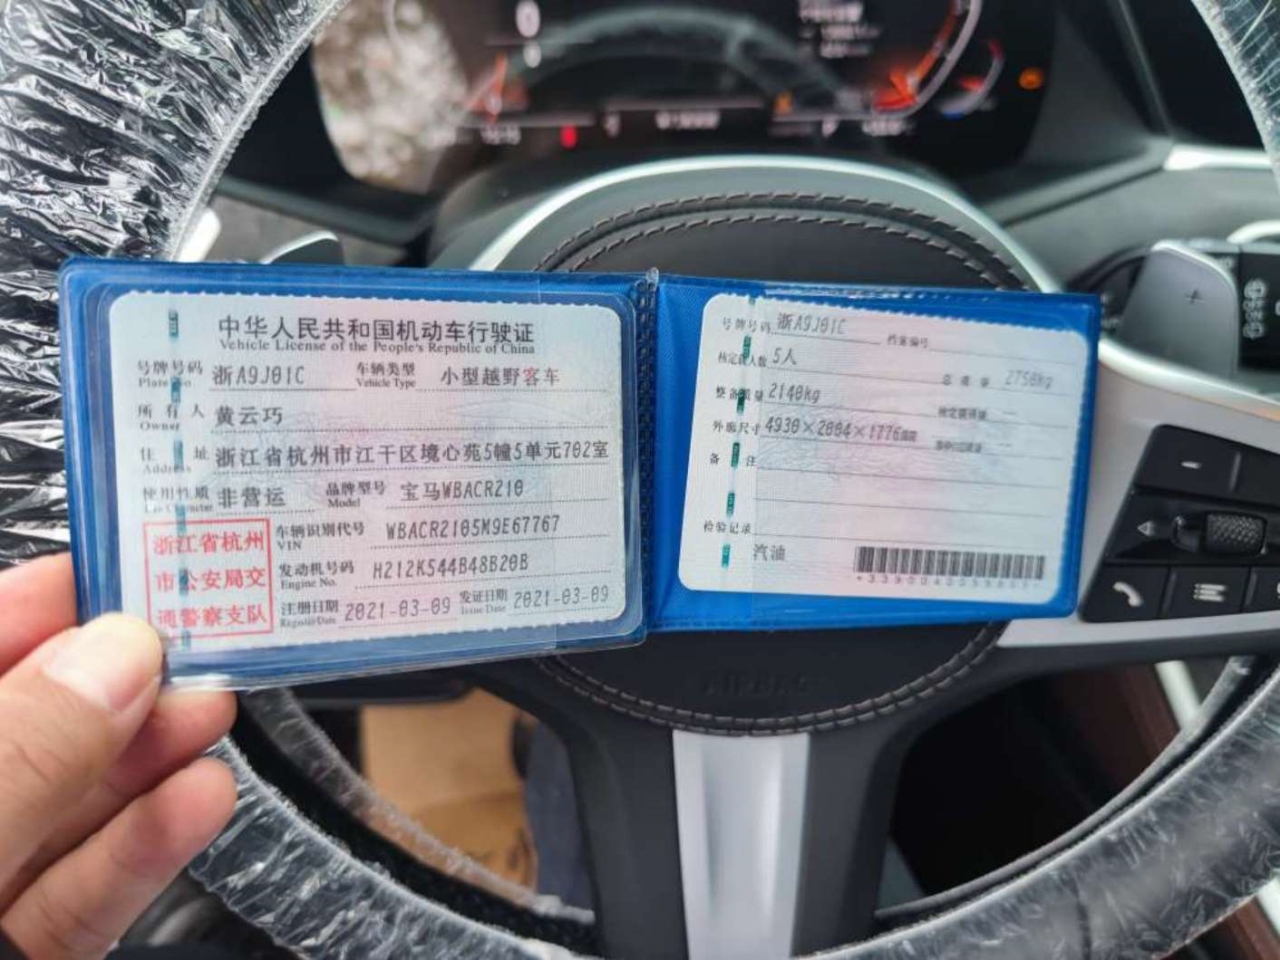 中华人民共和国机动车行驶证
Vehicle License of the People's Republic of China
号牌号码 浙A9J01C 车辆类型 小型越野客车
Plate No. Vehicle Type
所有人 黄云巧
Owner
住址 浙江省杭州市江干区境心苑5幢5单元702室
Address
使用性质 非营运 品牌型号 宝马WBACR210
Use Character Model
浙江省杭州
市公安局交
通警察支队
车辆识别代号 WBACR2105M9E67767
VIN
发动机号码 H212K544B48B20B
Engine No.
注册日期 2021-03-09 发证日期 2021-03-09
Register Date Issue Date
号牌号码 浙A9J01C 档案编号
核定载人数 5人 总质量 2750kg
整备质量 2140kg 核定载质量
外廓尺寸 4930×2004×1776mm
备注
检验记录
汽油
AIRBAG